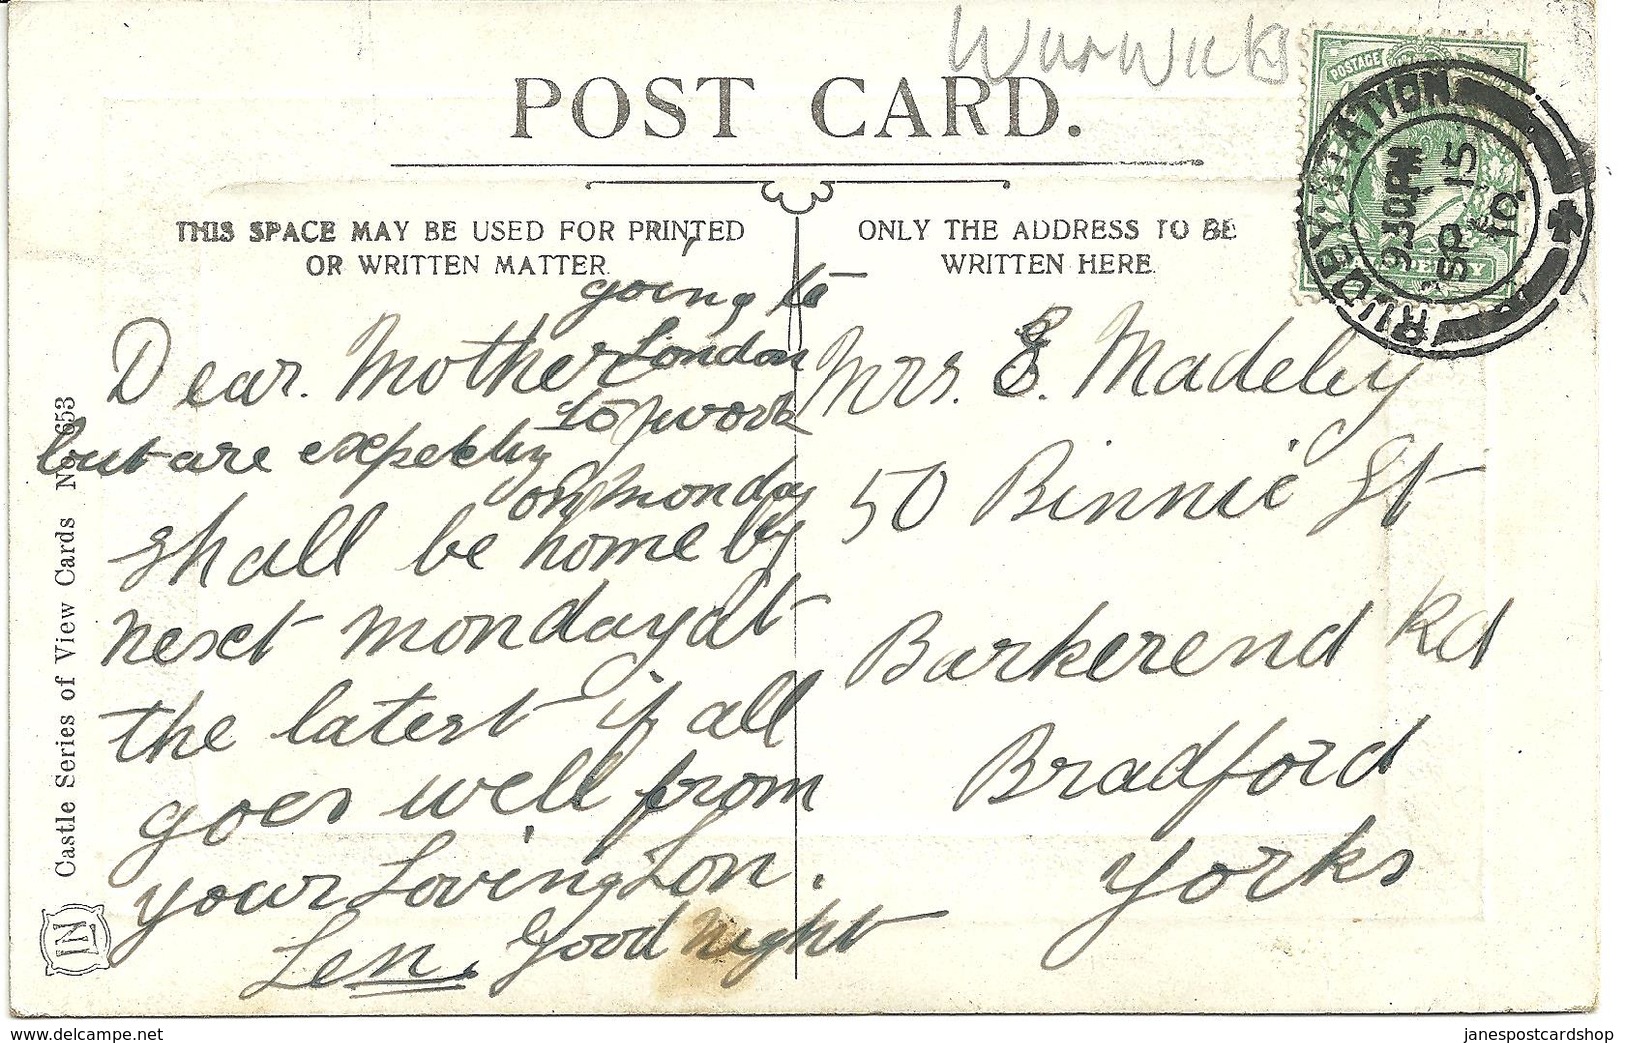 Warwicks
POST CARD.
THIS SPACE MAY BE USED FOR PRINTED
OR WRITTEN MATTER.
ONLY THE ADDRESS TO BE
WRITTEN HERE.
POSTAGE
RUGBY STATION
9 30 PM
SP 15
10
Dear Mother
but are expectly
going to
London
to work
on monday
shall be home by
next monday at
the latest if all
goes well from
your Loving Son.
Len. Good Night
Mrs. E. Madeley
50 Binnie St
Barkerend Rd
Bradford
Yorks
Castle Series of View Cards No 653
IN
www.delcampe.net
janespostcardshop